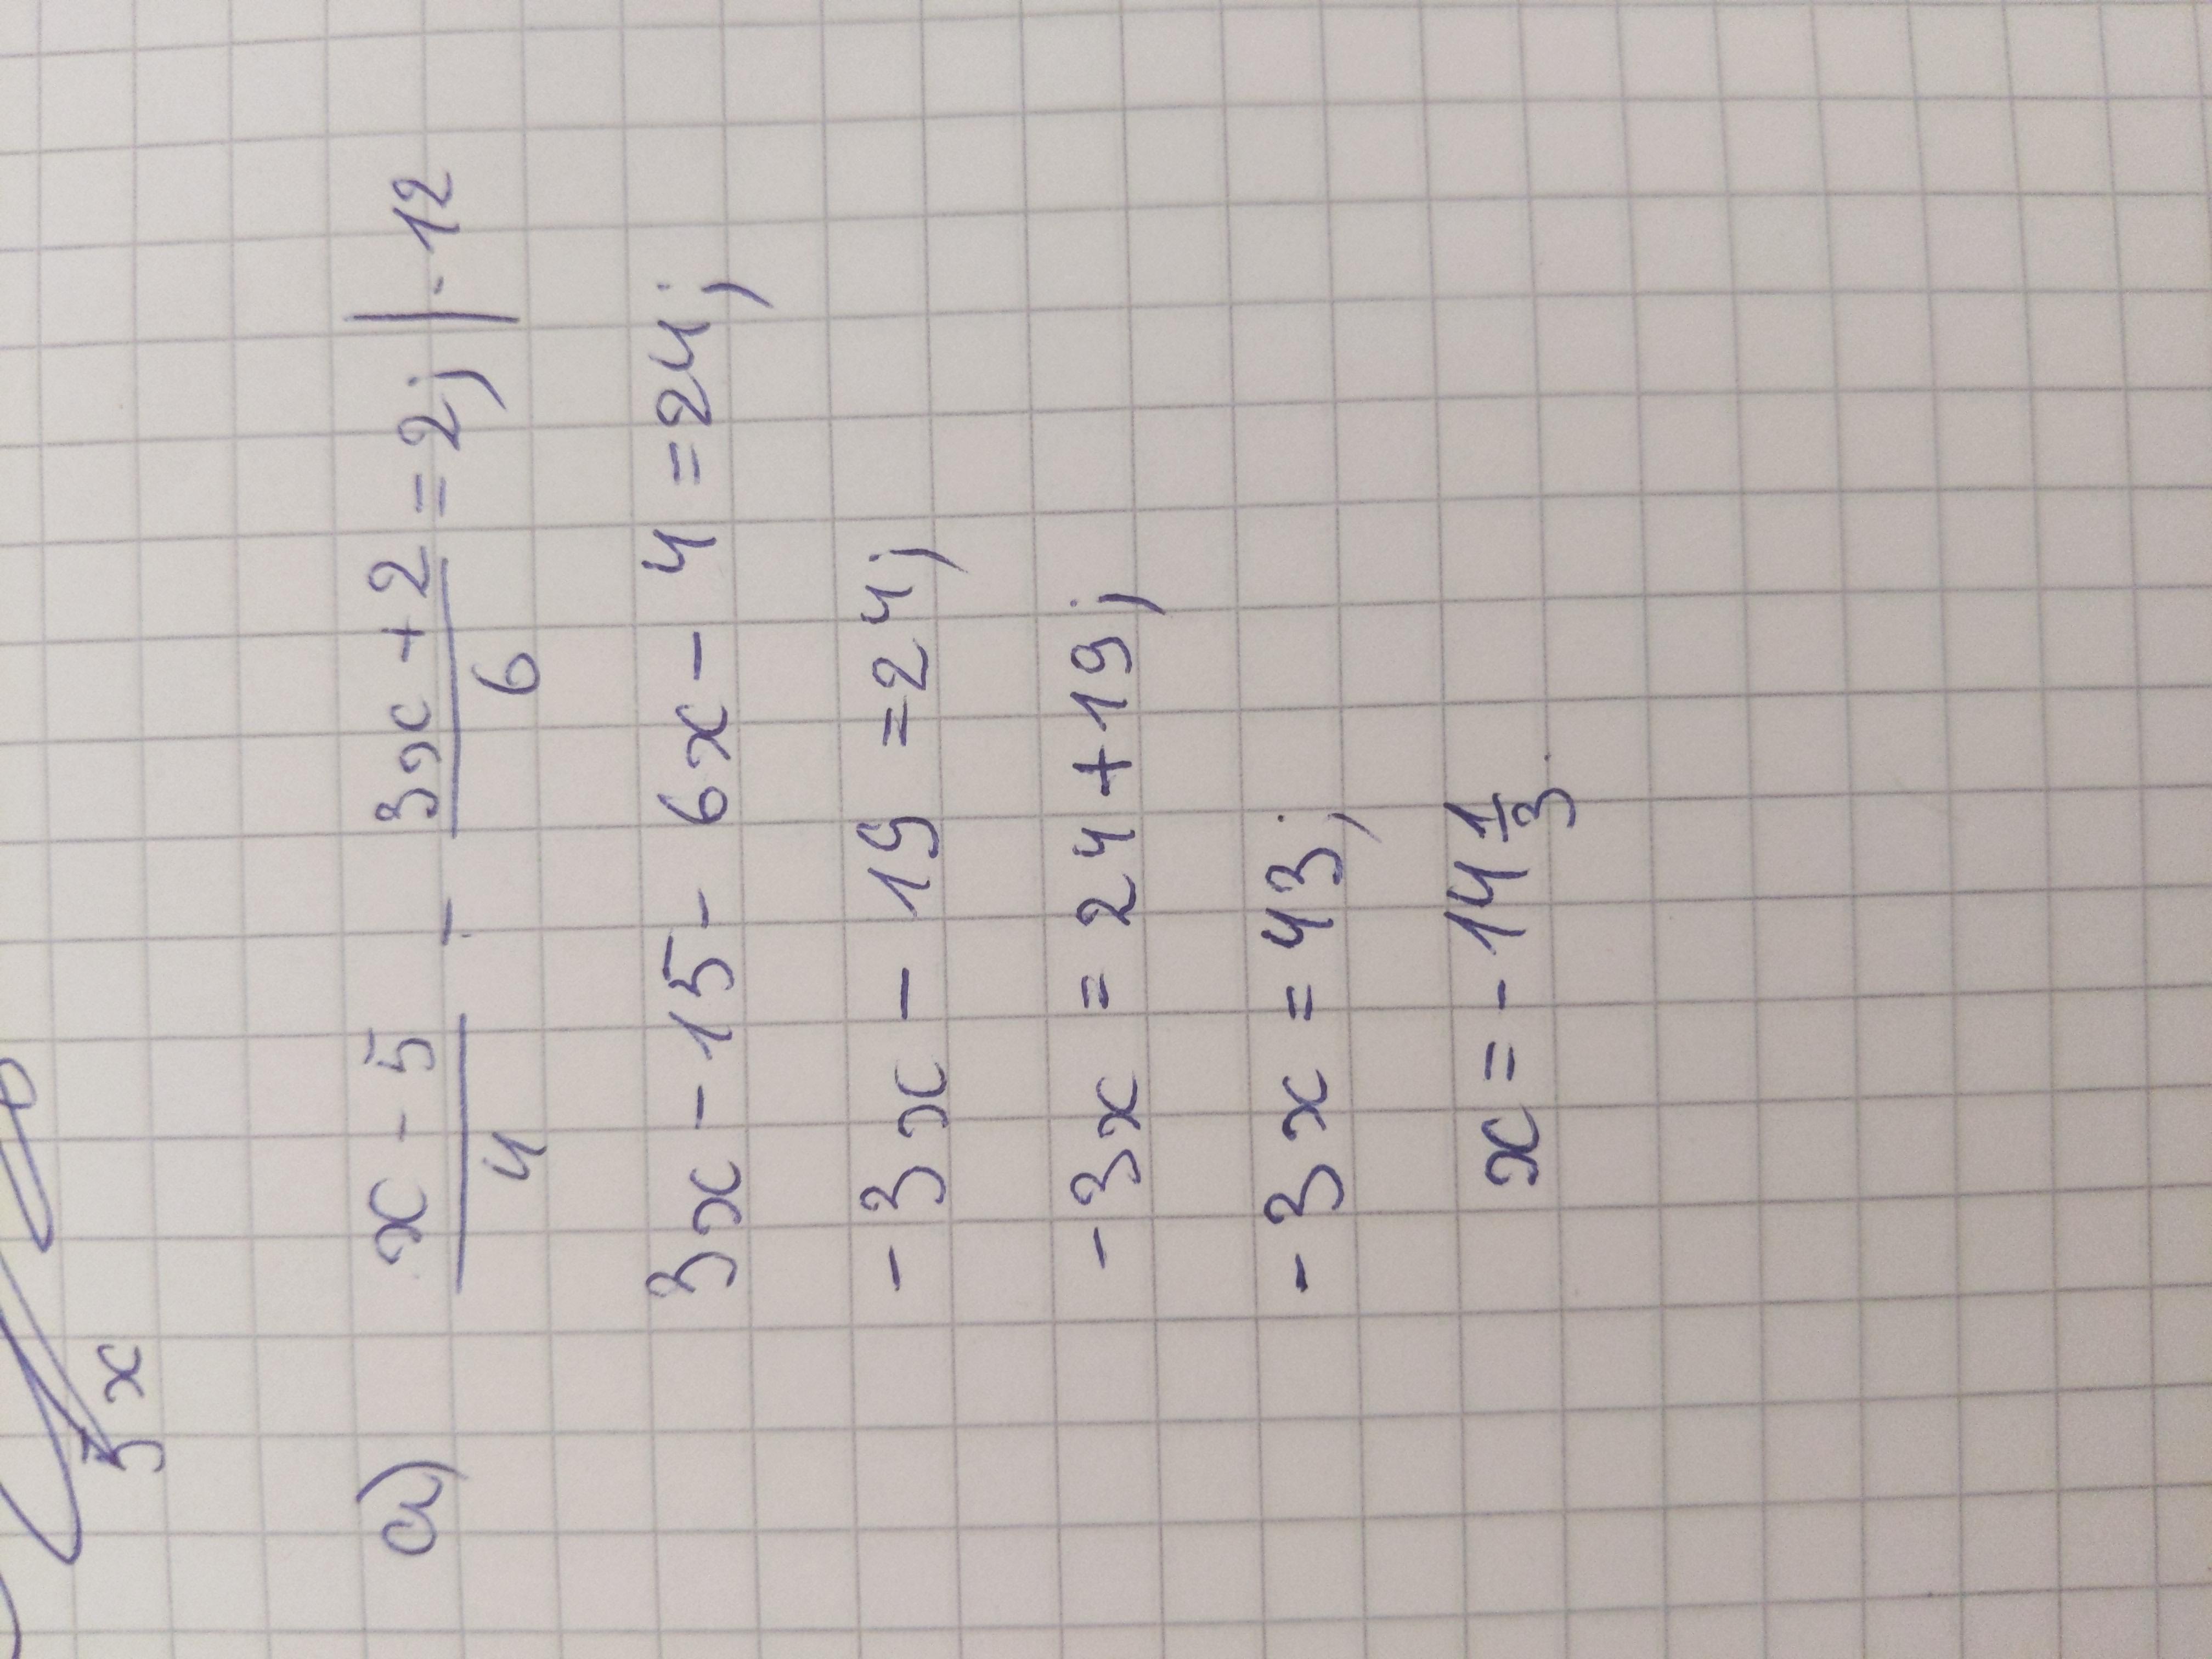 3x
a) (x - 5)/4 - (3x + 2)/6 = 2; | · 12
3x - 15 - 6x - 4 = 24;
-3x - 19 = 24;
-3x = 24 + 19;
-3x = 43;
x = - 14 1/3.